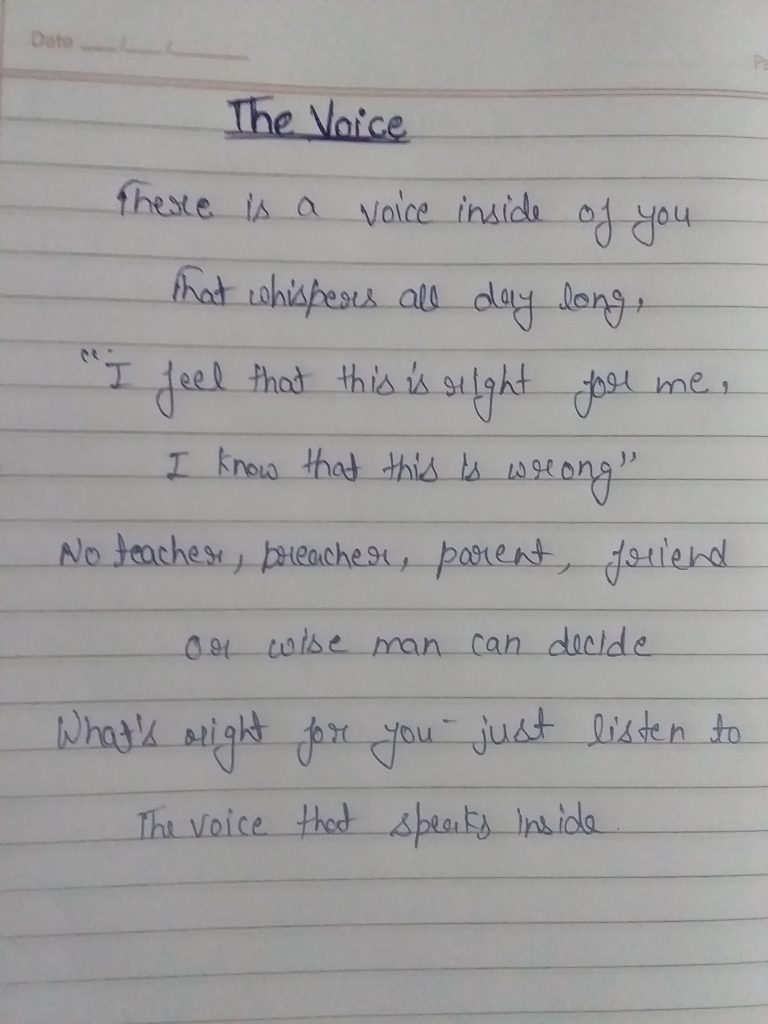 Date
The Voice
There is a voice inside of you
That whispers all day long,
"I feel that this is right for me,
I know that this is wrong"
No teacher, preacher, parent, friend
Or wise man can decide
What's right for you - just listen to
The voice that speaks inside.